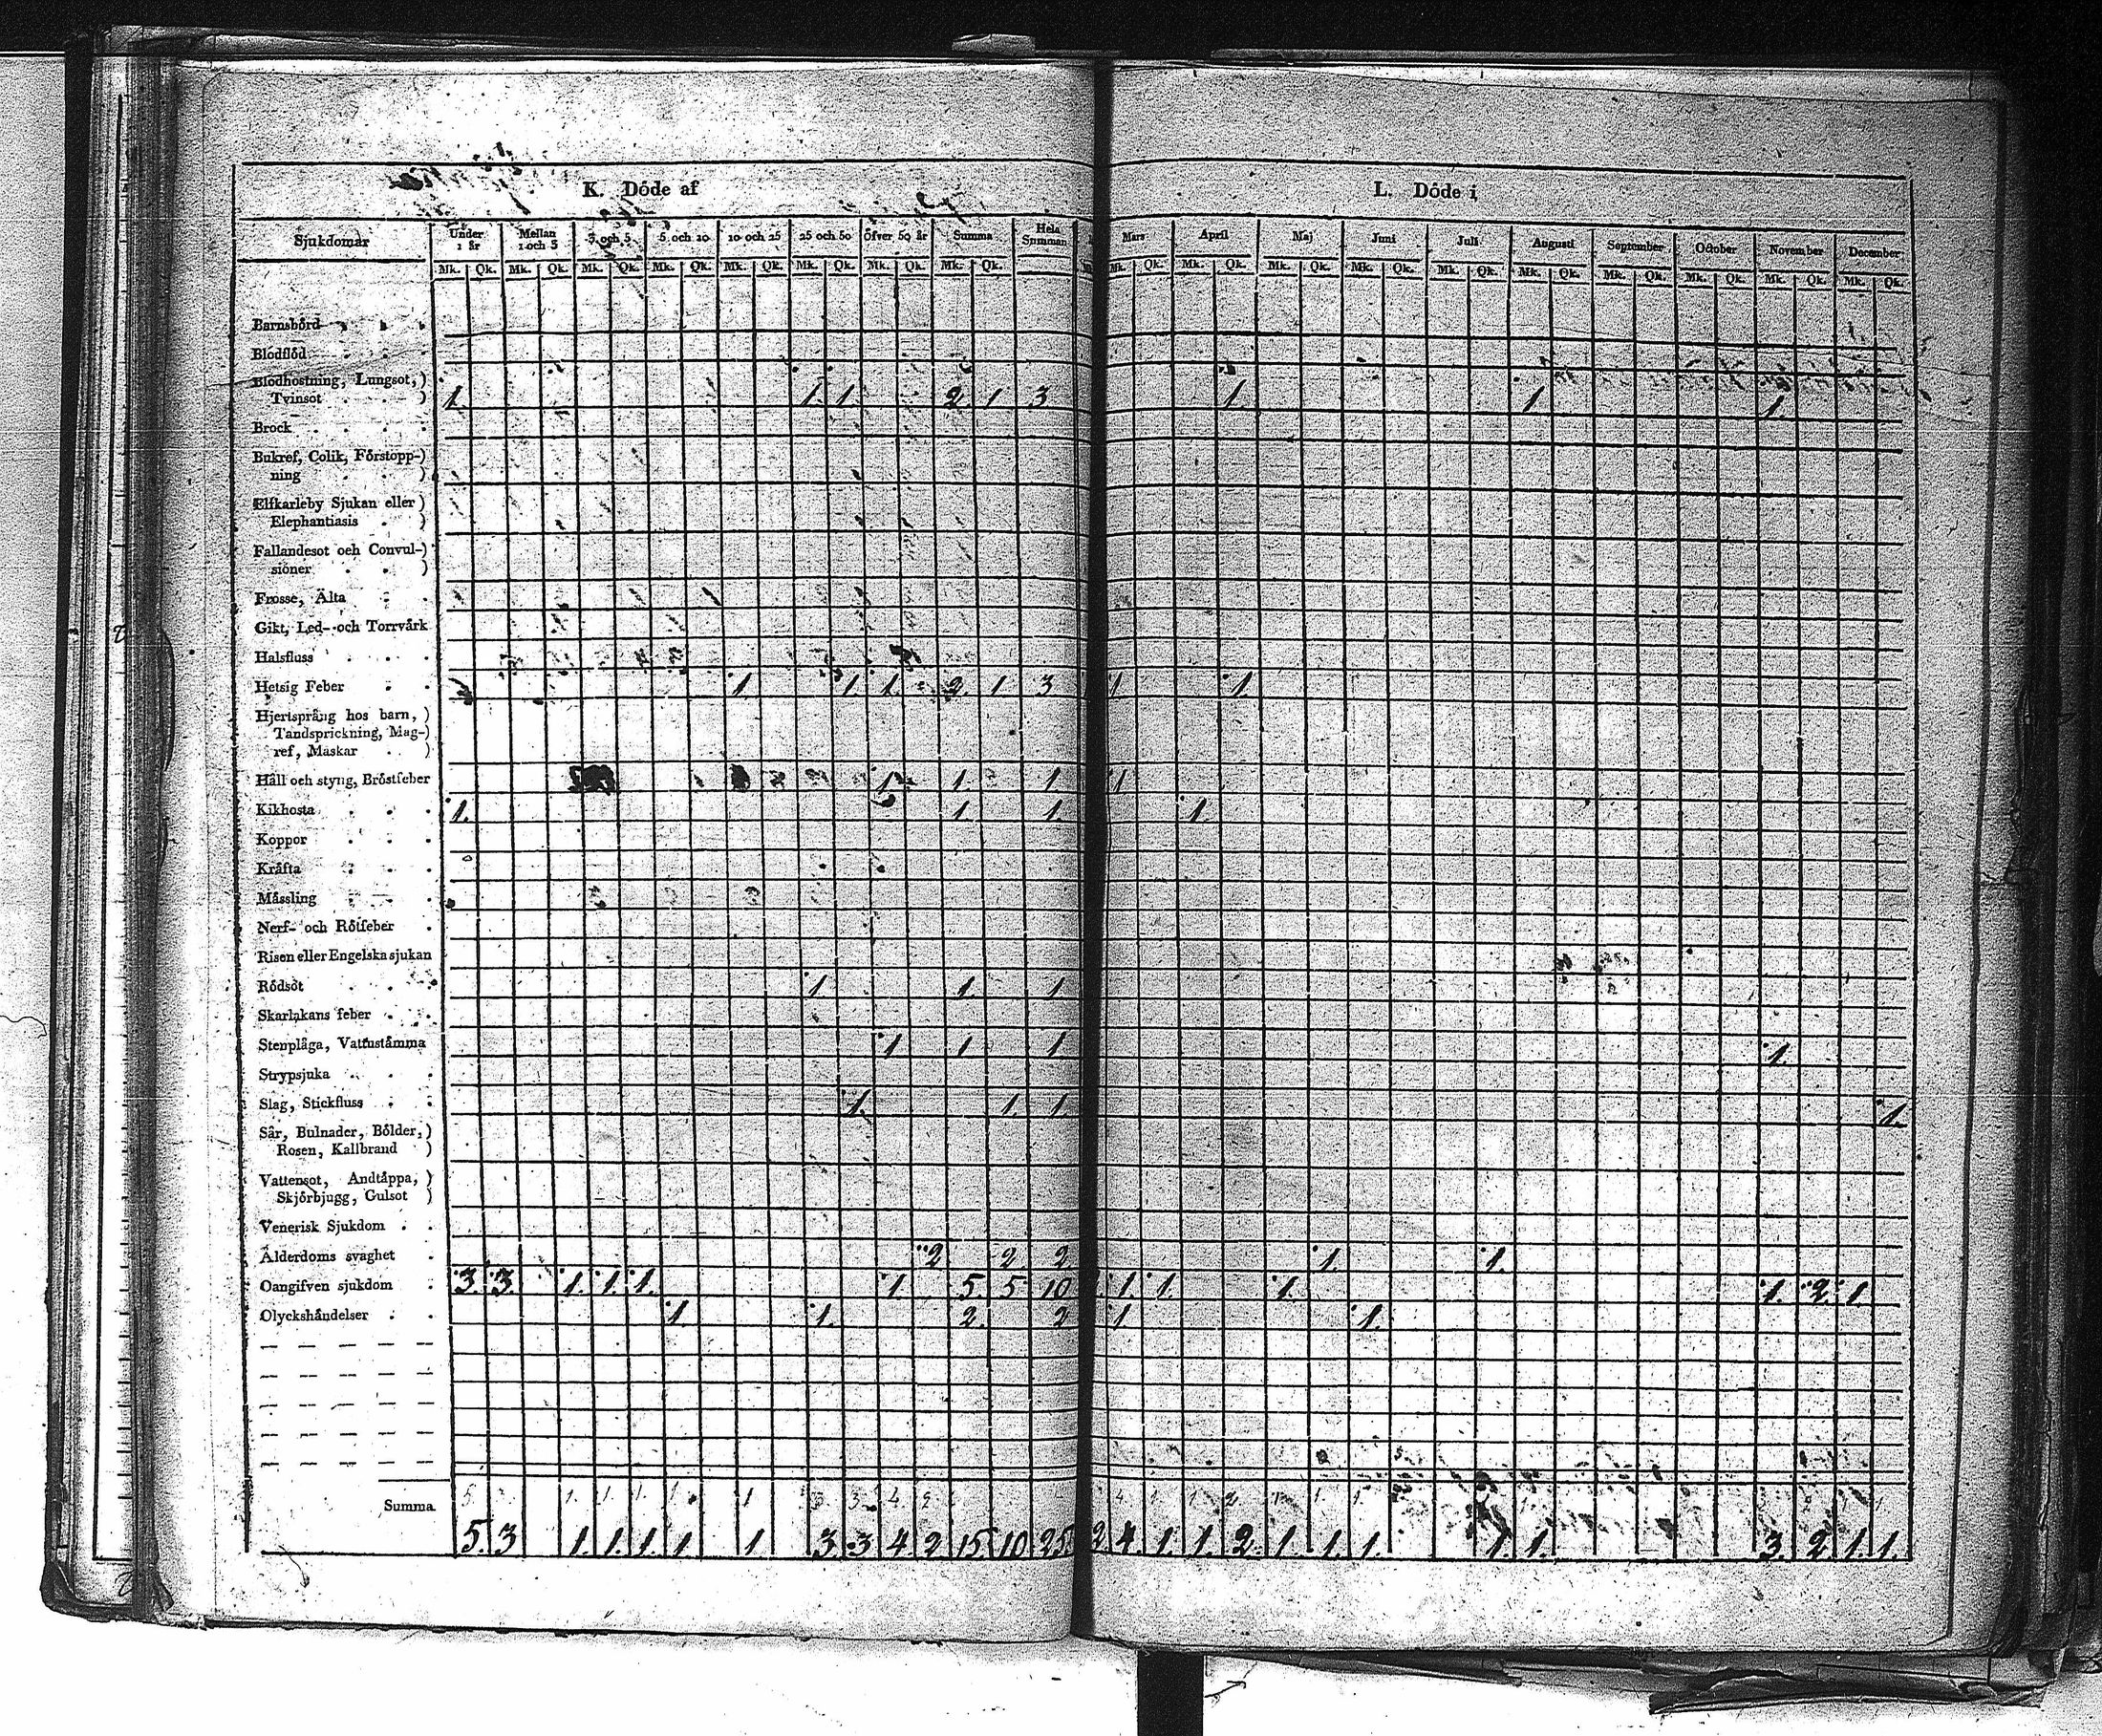 K. Döde af L. Döde i
Sjukdomar Under 1 år Mellan 1 och 3 3 och 5 5 och 10 10 och 25 25 och 50 Öfver 50 år Summa Hela Summan Mars April Maj Juni Juli Augusti September October November December
Mk. Qk. Mk. Qk. Mk. Qk. Mk. Qk. Mk. Qk. Mk. Qk. Mk. Qk. Mk. Qk. Mk. Qk. Mk. Qk. Mk. Qk. Mk. Qk. Mk. Qk. Mk. Qk. Mk. Qk. Mk. Qk. Mk. Qk. Mk. Qk.
Barnsbörd
Blodflöd
Blodhostning, Lungsot,)
Tvinsot ) 1. 1. 1. 2. 1 3 1. 1 1.
Brock
Bukref, Colik, Förstopp-)
ning )
Elfkarleby Sjukan eller)
Elephantiasis )
Fallandesot och Convul-)
sioner )
Frosse, Älta
Gikt, Led- och Torrvärk
Halsfluss
Hetsig Feber 1 1. 1. 2. 1 3 1 1.
Hjertsprång hos barn, )
Tandsprickning, Mag-)
ref, Maskar )
Håll och styng, Bröstfeber 1 1. 1 1
Kikhosta 1. 1. 1. 1.
Koppor
Kräfta
Mässling
Nerf- och Rötfeber
Risen eller Engelska sjukan
Rödsot 1 1. 1
Skarlakans feber
Stenplåga, Vattustämma 1 1 1 1.
Strypsjuka
Slag, Stickfluss 1. 1. 1. 1.
Sår, Bulnader, Bölder,)
Rosen, Kallbrand )
Vattensot, Andtäppa, )
Skjörbjugg, Gulsot )
Venerisk Sjukdom
Ålderdoms svaghet 2 2. 2 1. 1.
Oangifven sjukdom 3. 3. 1. 1. 1. 1. 5. 5 10 1. 1. 1. 1. 2. 1.
Olyckshändelser 1. 1. 2. 2 1 1.
Summa
5. 3. 1. 1. 1. 1. 1 3. 3 4. 2 15. 10 25. 2 4. 1. 1. 2. 1. 1. 1. 1. 1. 3. 2 1. 1.